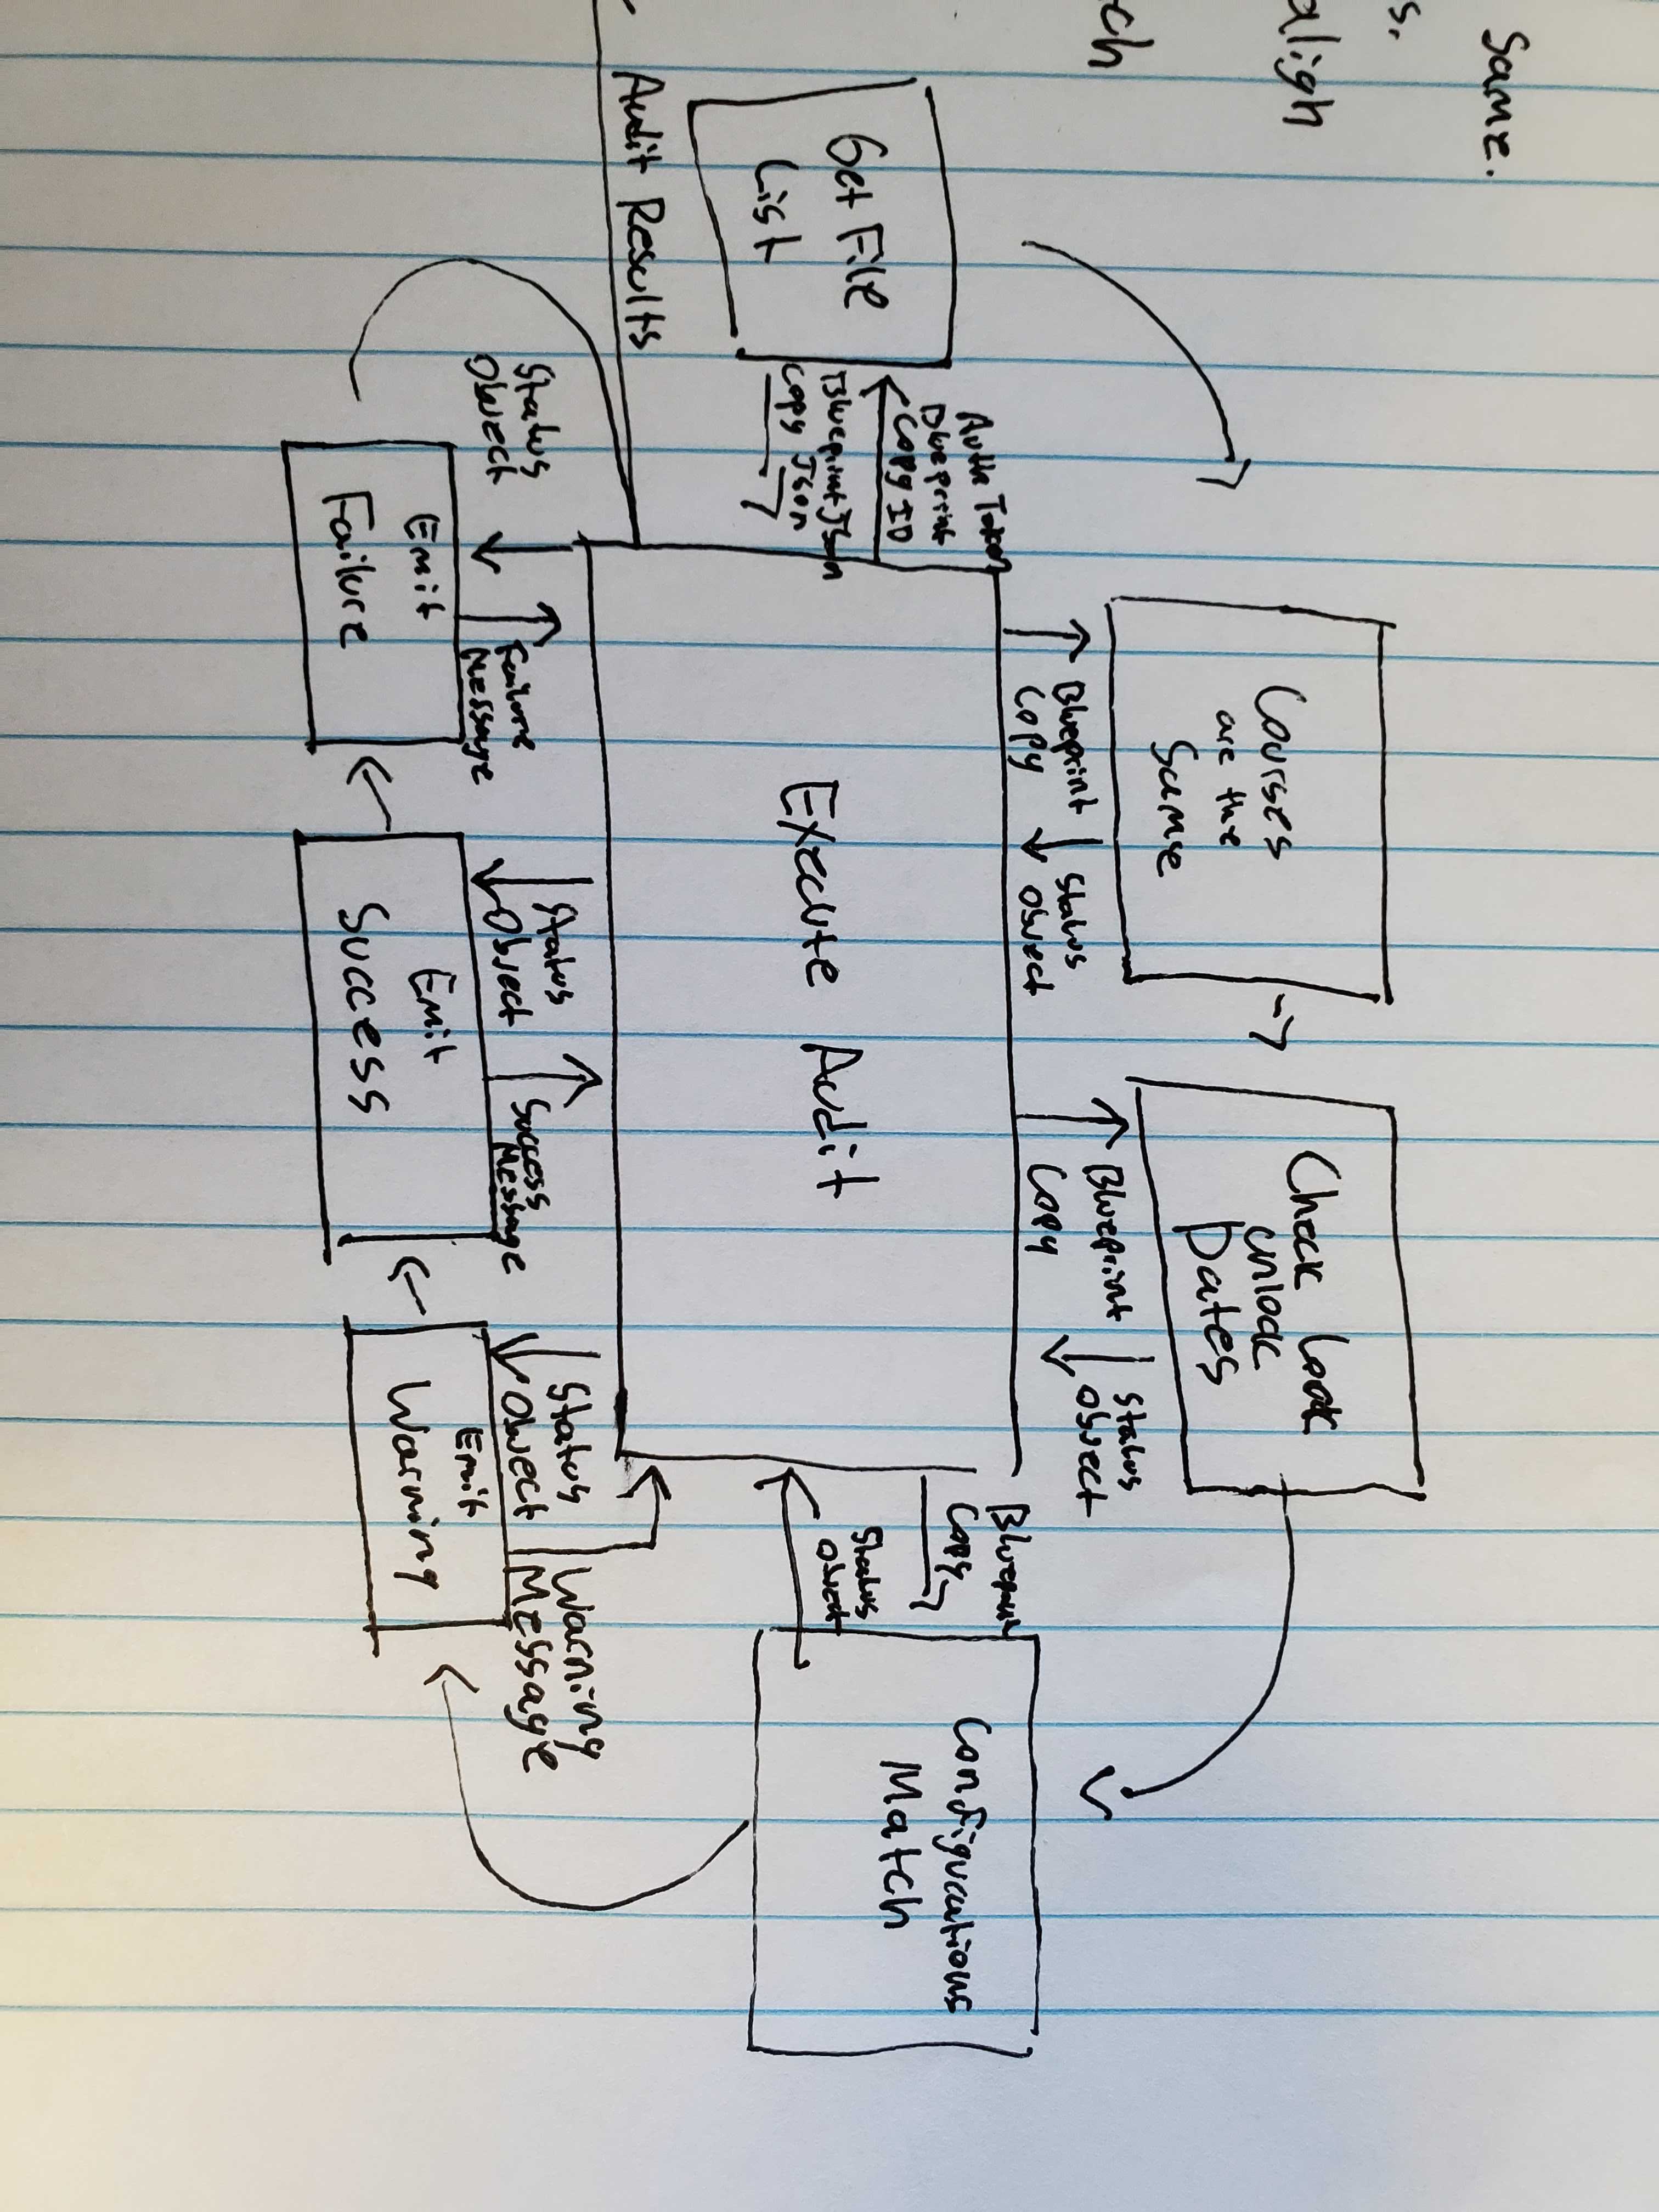 Same.
s.
aligh
ch
Courses
are the
Same
Check Lock
unlock
Dates
Blueprint
Copy
Status
Object
Blueprint
Copy
Status
Object
Auth Token
Blueprint
Copy ID
Blueprint Json
Copy Json
Get File
List
Execute Audit
Blueprint
Copy
Status
Object
Configurations
Match
Audit Results
Status
Object
Failure
Message
Status
Object
Success
Message
Status
Object
Warning
Message
Emit
Failure
Emit
Success
Emit
Warning